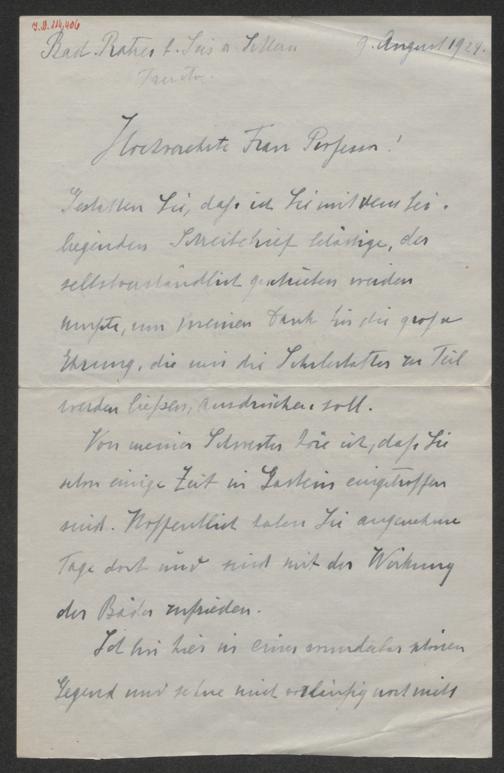 J.N. 114.406
Bad Ratzes b. Seis a. Schlern 9. August 1924.
Hochverehrte Frau Professor!
Gestatten Sie, daß ich Sie mit dem bei-
liegenden Schreibebrief belästige, der
selbstverständlich geschrieben werden
mußte, um meinen Dank für die große
Ehrung, die mir die Schubertatler zu Teil
werden ließen, ausdrücken soll.
Von meiner Schwester höre ich, daß Sie
schon einige Zeit in Gastein eingetroffen
sind. Hoffentlich haben Sie angenehme
Tage dort und sind mit der Wirkung
der Bäder zufrieden.
Ich bin hier in einer wunderbar schönen
Gegend und sehne mich vorläufig noch nicht